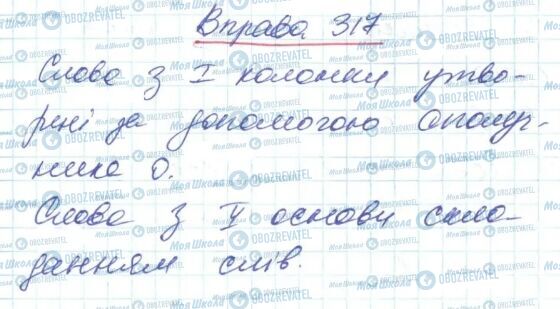 Вправа 317
Слова з I колонки утво-
рені за допомогою сполуч-
ника о.
Слова з II основи скла-
данням слів.